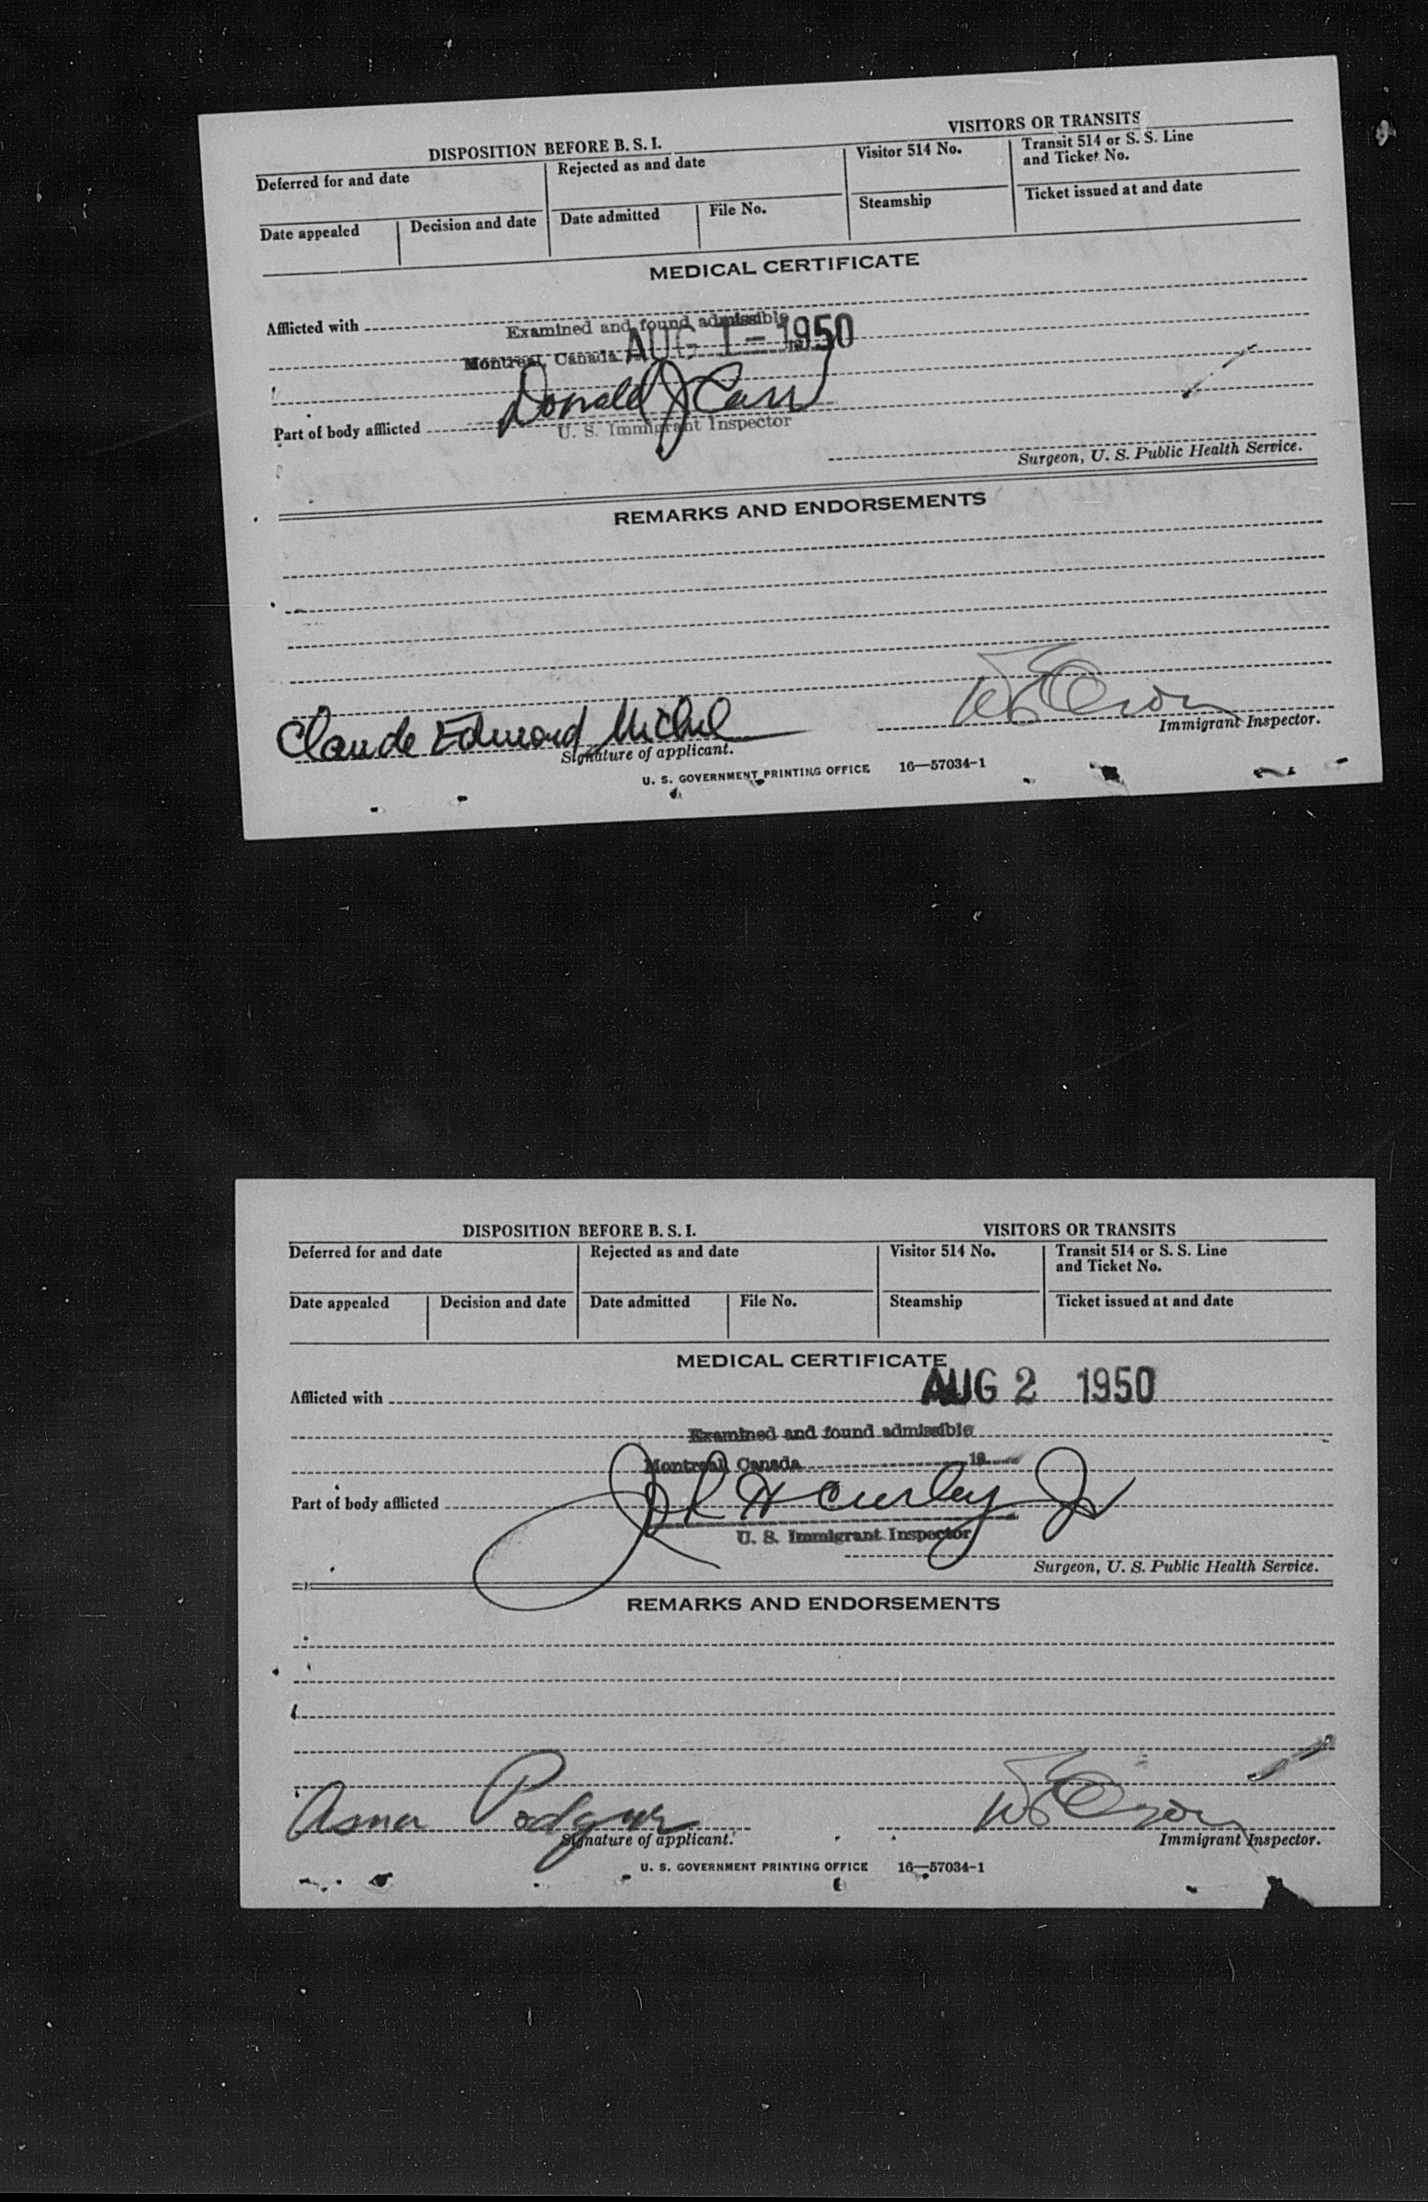 DISPOSITION BEFORE B. S. I.
VISITORS OR TRANSITS
Deferred for and date
Rejected as and date
Visitor 514 No.
Transit 514 or S. S. Line
and Ticket No.
Date appealed
Decision and date
Date admitted
File No.
Steamship
Ticket issued at and date
MEDICAL CERTIFICATE
Afflicted with
Examined and found admissible
Montreal, Canada AUG 1 - 1950
Donald J Carr
Part of body afflicted
U. S. Immigrant Inspector
Surgeon, U. S. Public Health Service.
REMARKS AND ENDORSEMENTS
Claude Edmond Michel
Signature of applicant.
Immigrant Inspector.
U. S. GOVERNMENT PRINTING OFFICE 16—57034-1
DISPOSITION BEFORE B. S. I.
VISITORS OR TRANSITS
Deferred for and date
Rejected as and date
Visitor 514 No.
Transit 514 or S. S. Line
and Ticket No.
Date appealed
Decision and date
Date admitted
File No.
Steamship
Ticket issued at and date
MEDICAL CERTIFICATE
AUG 2 1950
Afflicted with
Examined and found admissible
Montreal, Canada 19
Part of body afflicted
Curley Jr
U. S. Immigrant Inspector
Surgeon, U. S. Public Health Service.
REMARKS AND ENDORSEMENTS
Signature of applicant.
Immigrant Inspector.
U. S. GOVERNMENT PRINTING OFFICE 16—57034-1